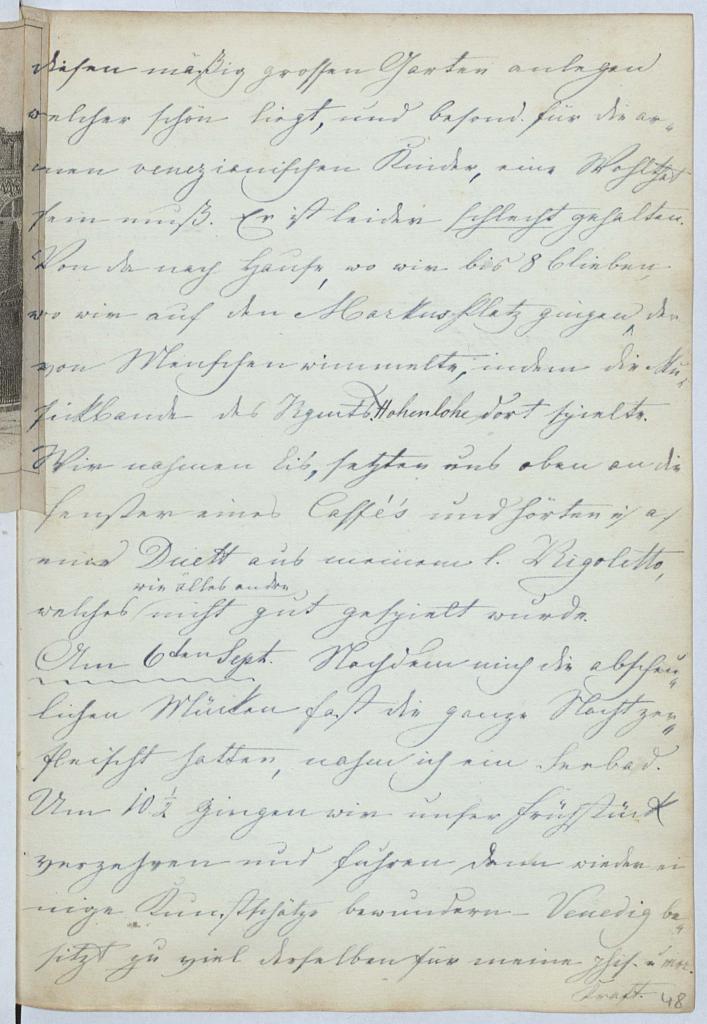 diesen mäßig grossen Garten anlegen
welcher schön liegt, und besond. für die ar„
men venezianischen Kinder, eine Wohlthat
sein muß. Er ist leider schlecht gehalten.
Von da nach Hause, wo wir bis 8 blieben,
wo wir auf den Markusplatz gingen, der
von Menschen wimmelte, indem die Mu„
sickbande des Rgmts Hohenlohe dort spielte.
Wir nahmen Eis, setzten uns oben an die
Fenster eines Caffé's und hörten
eine Duett aus meinem l. Rigoletto,
wie alles andre
welches nicht gut gespielt wurde.
Am 6ten Sept. Nachdem mich die abscheu„
lichen Mücken fast die ganze Nacht zer„
fleischt hatten, nahm ich ein Seebad.
Um 10½ gingen wir unser Frühstück
verzehren und fuhren dann wieder ei
nige Kunstschätze bewundern – Venedig be„
sitzt zu viel derselben für meine phis. u mor.
Kraft. 48